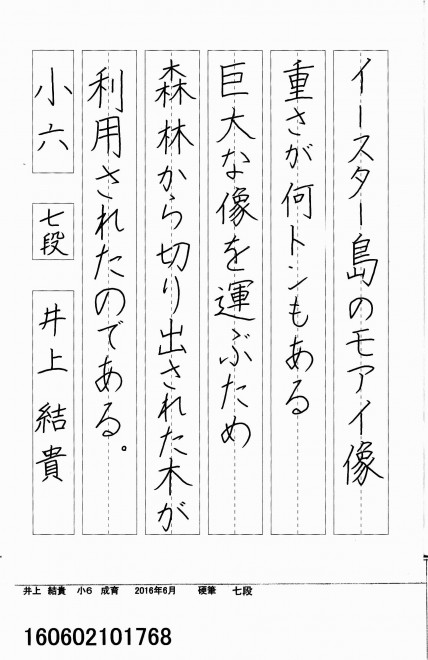 イースター島のモアイ像
重さが何トンもある
巨大な像を運ぶため
森林から切り出された木が
利用されたのである。
小六 七段 井上結貴
井上 結貴 小6 成育 2016年6月 硬筆 七段
160602101768